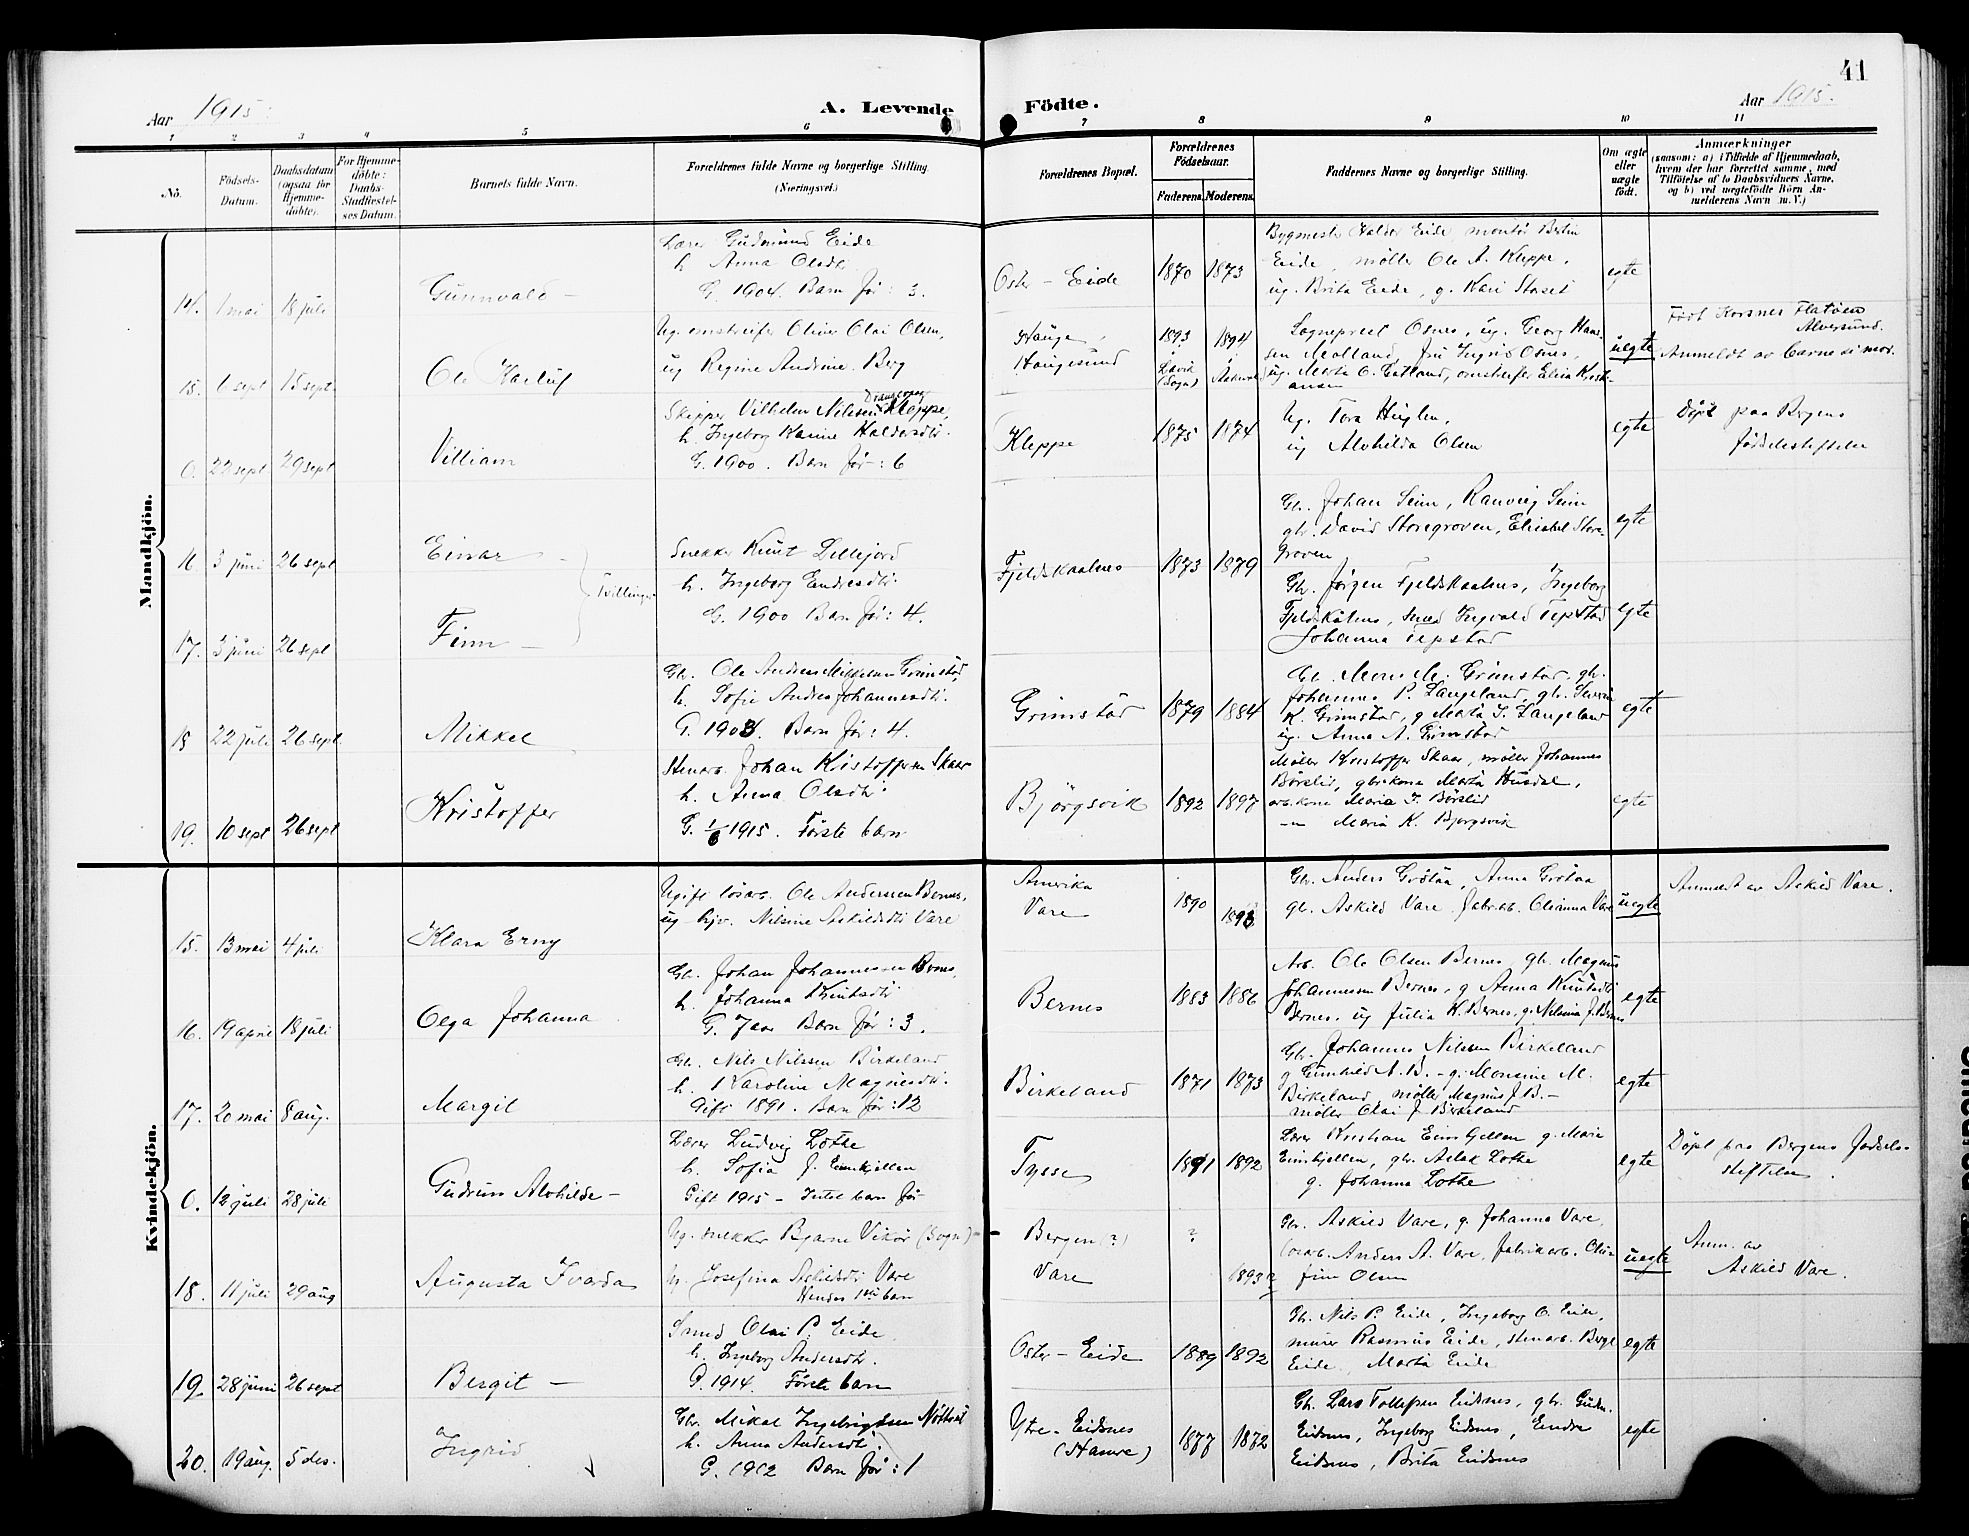 41
Aar 1915.
A. Levende Födte.
Aar 1915.
1 2 3 4 5 6 7 8 9 10 11
No.
Födsels-Datum.
Daabsdatum (ogsaa for Hjemme-döbte).
For Hjemme-döbte: Daabs-Stadfæstel-ses Datum.
Barnets fulde Navn.
Forældrenes fulde Navne og borgerlige Stilling. (Næringsvei.)
Forældrenes Bopæl.
Forældrenes Födselsaar.
Faderens. Moderens.
Faddernes Navne og borgerlige Stilling.
Om ægte eller uægte födt.
Anmærkninger
(saasom: a) i Tilfælde af Hjemmedaab,
hvem der har forrettet samme, med
Tilföielse af to Daabsvidners Navne,
og b) ved uægtefödte Börn An-
melderens Navn m. V.)
Mandkjön.
14. 1 mai 18 juli
Gunnvald –
Lærer Gudmund Eide
h. Anna Olsdtr.
G. 1904. Barn før: 3.
Oster – Eide
1870 1873
Bygmester Haldor Eide, montør Bertin
Eide, møller Ole A. Kleppe,
ug. Brita Eide, g. Kari Staset
egte
15. 6 sept 15 sept.
Ole Karluf
Ug. omstreifer Oliver Olai Olsen,
ug Regine Andrine Berg
Hauge,
Haugesund
1893 Lavik (Sogn)
1894
Sogneprest Osnes, ug. Georg Han-
sen Molland, fru Ingrid Osnes,
ug. Marta O. Hatland, omstreifer Elisa Kristi-
ansen
uegte
Født Korsnes Flatøen
Alversund.
Anmeldt av barnets mor.
0. 22 sept 29 sept
Villiam
Skipper Vilhelm Nilsen Kleppe,
h. Ingeborg Karine Haldorsdtr.
G. 1900. Barn før: 6
Kleppe
1875 1874
Ug. Tora Huglen,
ug Alvhilda Olsen
egte
Døpt paa Bergens
fødselsstiftelse
16. 3 juni 26 sept
Einar –
Tvillinger
Snekker Knut Lillejord
h. Ingeborg Endresdtr.
G. 1900 Barn før: 4.
Fjeldskaalnes
1873 1879
Gb. Johan Seim, Ranveig Seim
gb. David Storegroven, Elisabet Store-
groven
egte
17. 3 juni 26 sept
Finn –
Gb. Jørgen Fjeldskaalnes, Ingeborg
Fjeldskålnes, Smed Ingvald Tepstad
Johanna Tepstad
egte
18 22 juli 26 sept
Mikkel
Gb. Ole Andreas Mikkelsen Grimstad,
h. Sofie Andrea Johannesdtr.
G. 1903. Barn før: 4.
Grimstad
1879 1884
Gb. Mons M. Grimstad, gb.
Johannes P. Langeland, gb. Severin
K. Grimstad, g Marta J. Langeland
ug. Anna A. Grimstad
egte
19. 10 sept 26 sept
Kristoffer
Stenarb. Johan Kristoffersen Skaar
h. Anna Olsdtr.
G. 1/6 1915. Første barn
Bjørgsvik
1892 1897
Møller Kristoffer Skaar, møller Johannes
Børslid, gbr.kone Marta Husdal,
arb.kone Maria J. Børslid
–"– Maria K. Bjørgsvik
egte
Kvindekjön.
15. 13 mai 4 juli
Klara Erny
Ugift løsarb. Ole Anderssen Bernes,
ug hjv. Nilsine Askildsdtr Vare
Amerika
Vare
1890 1893
Gb. Anders Grøtaa, Anna Grøtaa
gb. Askild Vare, fabr.arb. Olianna Vare
uegte
Anmeldt av Askild Vare.
16. 19 april 18 juli
Olga Johanna
Gb. Johan Johannessen Bernes,
h. Johanna Knutsdtr
G. 7 aar Barn før: 3.
Bernes
1883 1886
Arb. Ole Olsen Bernes, gb. Magnus
Johannessen Bernes, g Anna Knutsdtr
Bernes, ug Julia K. Bernes, g. Nilsina J. Bernes
egte
17. 20 mai 8 aug.
Margit
Gb. Nils Nilssen Birkeland
h. Karoline Magnesdtr.
Gift 1891. Barn før: 12
Birkeland
1871 1873
Gb. Johannes Nilssen Birkeland
g Gunhild A. B. – g. Monsine M.
Birkeland, møller Magnus J. B. –
møller Olai J. Birkeland
egte
0. 12 juli 28 juli
Gudrun Alvhilde –
Lærer Ludvig Lothe
h. Sofia J. Eimhjellen
Gift 1915 – Intet barn før
Tysse
1891 1892
Lærer Kristian Eimhjellen g. Marie
Eimhjellen, gb. Aslak Lothe
g. Johanna Lothe
egte
Døpt paa Bergens fødsels-
stiftelse.
18. 11 juli 29 aug
Augusta Ivarda
Ug. snekker Bjarne Vikør (Sogn) –
ug. Josefina Askildsdtr Vare
Hendes 1ste barn
Bergen (?)
Vare
? 1893
Gb. Askild Vare, g. Johanna Vare,
løsarb. Anders A. Vare, fabrikarb. Olu-
fine Olsen
uegte
Anm. av
Askild Vare.
19. 28 juni 26 sept
Bergit –
Smed Olai P. Eide
h. Ingeborg Andersdtr.
G. 1914. Første barn
Oster – Eide
1889 1892
Gb. Nils P. Eide, Ingeborg O. Eide,
murer Rasmus Eide, stenarb. Berge
Eide, Marta Eide
egte
20. 19 aug. 5 des.
Ingrid
Gbr. Mikal Ingebrigtsen Nøttveit
h. Anna Andersdtr.
G. 1912 Barn før: 1
Ytre – Eidsnes
(Hamre)
1877 1872
Gb. Lars Tollefsen Eidsnes, gb. Gudm.
Eidsnes, Ingeborg Eidsnes, Endre
Eidsnes, Brita Eidsnes
egte